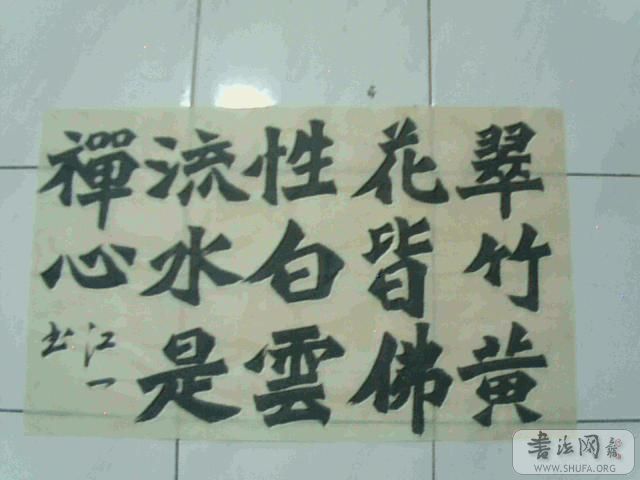 翠竹黄
花皆佛
性白雲
流水是
禪心
江一
书
書法网
WWW.SHUFA.ORG